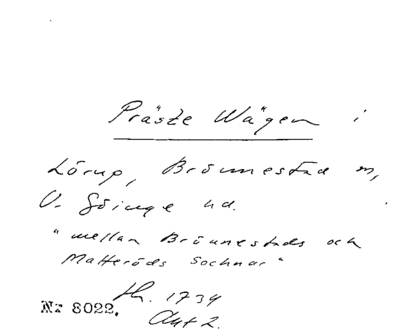 Präste Wägen i
Lörup, Brönnestad m,
V. Göinge hd.
"mellan Brönnestads och
Matteröds Sochnar"
th. 1734
Akt 2.
Nr 8022.